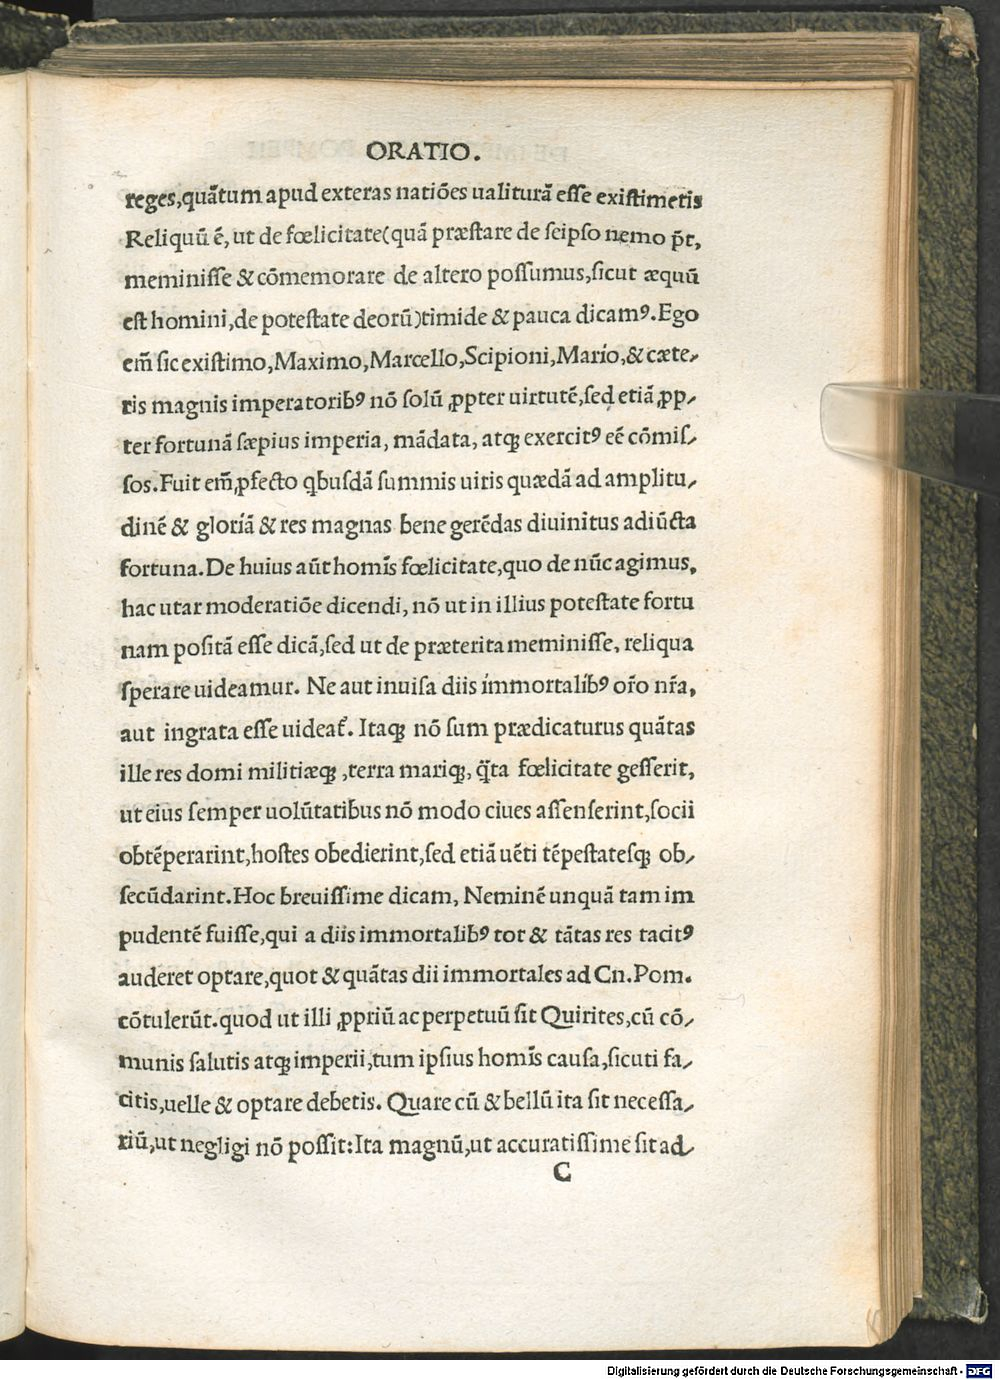 ORATIO.
reges,quãtum apud exteras natiões ualiturã eſſe exiſtimetis
Reliquũ ẽ, ut de fœlicitate(quã præſtare de ſeipſo nemo p̃t,
meminiſſe & cõmemorare de altero poſſumus,ſicut æquũ
eſt homini,de poteſtate deorũ)timide & pauca dicamꝰ.Ego
em̃ ſic exiſtimo,Maximo,Marcello,Scipioni,Mario,& cæte-
ris magnis imperatoribꝰ nõ ſolũ ꝓpter uirtutẽ,ſed etiã ꝓp-
ter fortunã ſæpius imperia, mãdata, atqꝫ exercitꝰ eẽ cõmiſ-
ſos.Fuit em̃,ꝓfecto qbuſdã ſummis uiris quædã ad amplitu-
dinẽ & gloriã & res magnas bene gerẽdas diuinitus adiũcta
fortuna.De huius aũt homĩs fœlicitate,quo de nũc agimus,
hac utar moderatiõe dicendi, nõ ut in illius poteſtate fortu
nam poſitã eſſe dicã,ſed ut de præterita meminiſſe, reliqua
ſperare uideamur. Ne aut inuiſa diis immortalibꝰ or̃o nr̃a,
aut ingrata eſſe uideat̃. Itaqꝫ nõ ſum prædicaturus quãtas
ille res domi militiæqꝫ ,terra mariqꝫ, q̃ta fœlicitate geſſerit,
ut eius ſemper uolũtatibus nõ modo ciues aſſenſerint,ſocii
obtẽperarint,hoſtes obedierint,ſed etiã uẽti tẽpeſtateſqꝫ ob-
ſecũdarint.Hoc breuiſſime dicam, Neminẽ unquã tam im
pudentẽ fuiſſe,qui a diis immortalibꝰ tot & tãtas res tacitꝰ
auderet optare,quot & quãtas dii immortales ad Cn.Pom.
cõtulerũt.quod ut illi ꝓpriũ ac perpetuũ ſit Quirites,cũ cõ-
munis ſalutis atqꝫ imperii,tum ipſius homĩs cauſa,ſicuti fa-
citis,uelle & optare debetis. Quare cũ & bellũ ita ſit neceſſa-
riũ,ut negligi nõ poſſit:Ita magnũ,ut accuratiſſime ſit ad-
C
Digitalisierung gefördert durch die Deutsche Forschungsgemeinschaft - DFG